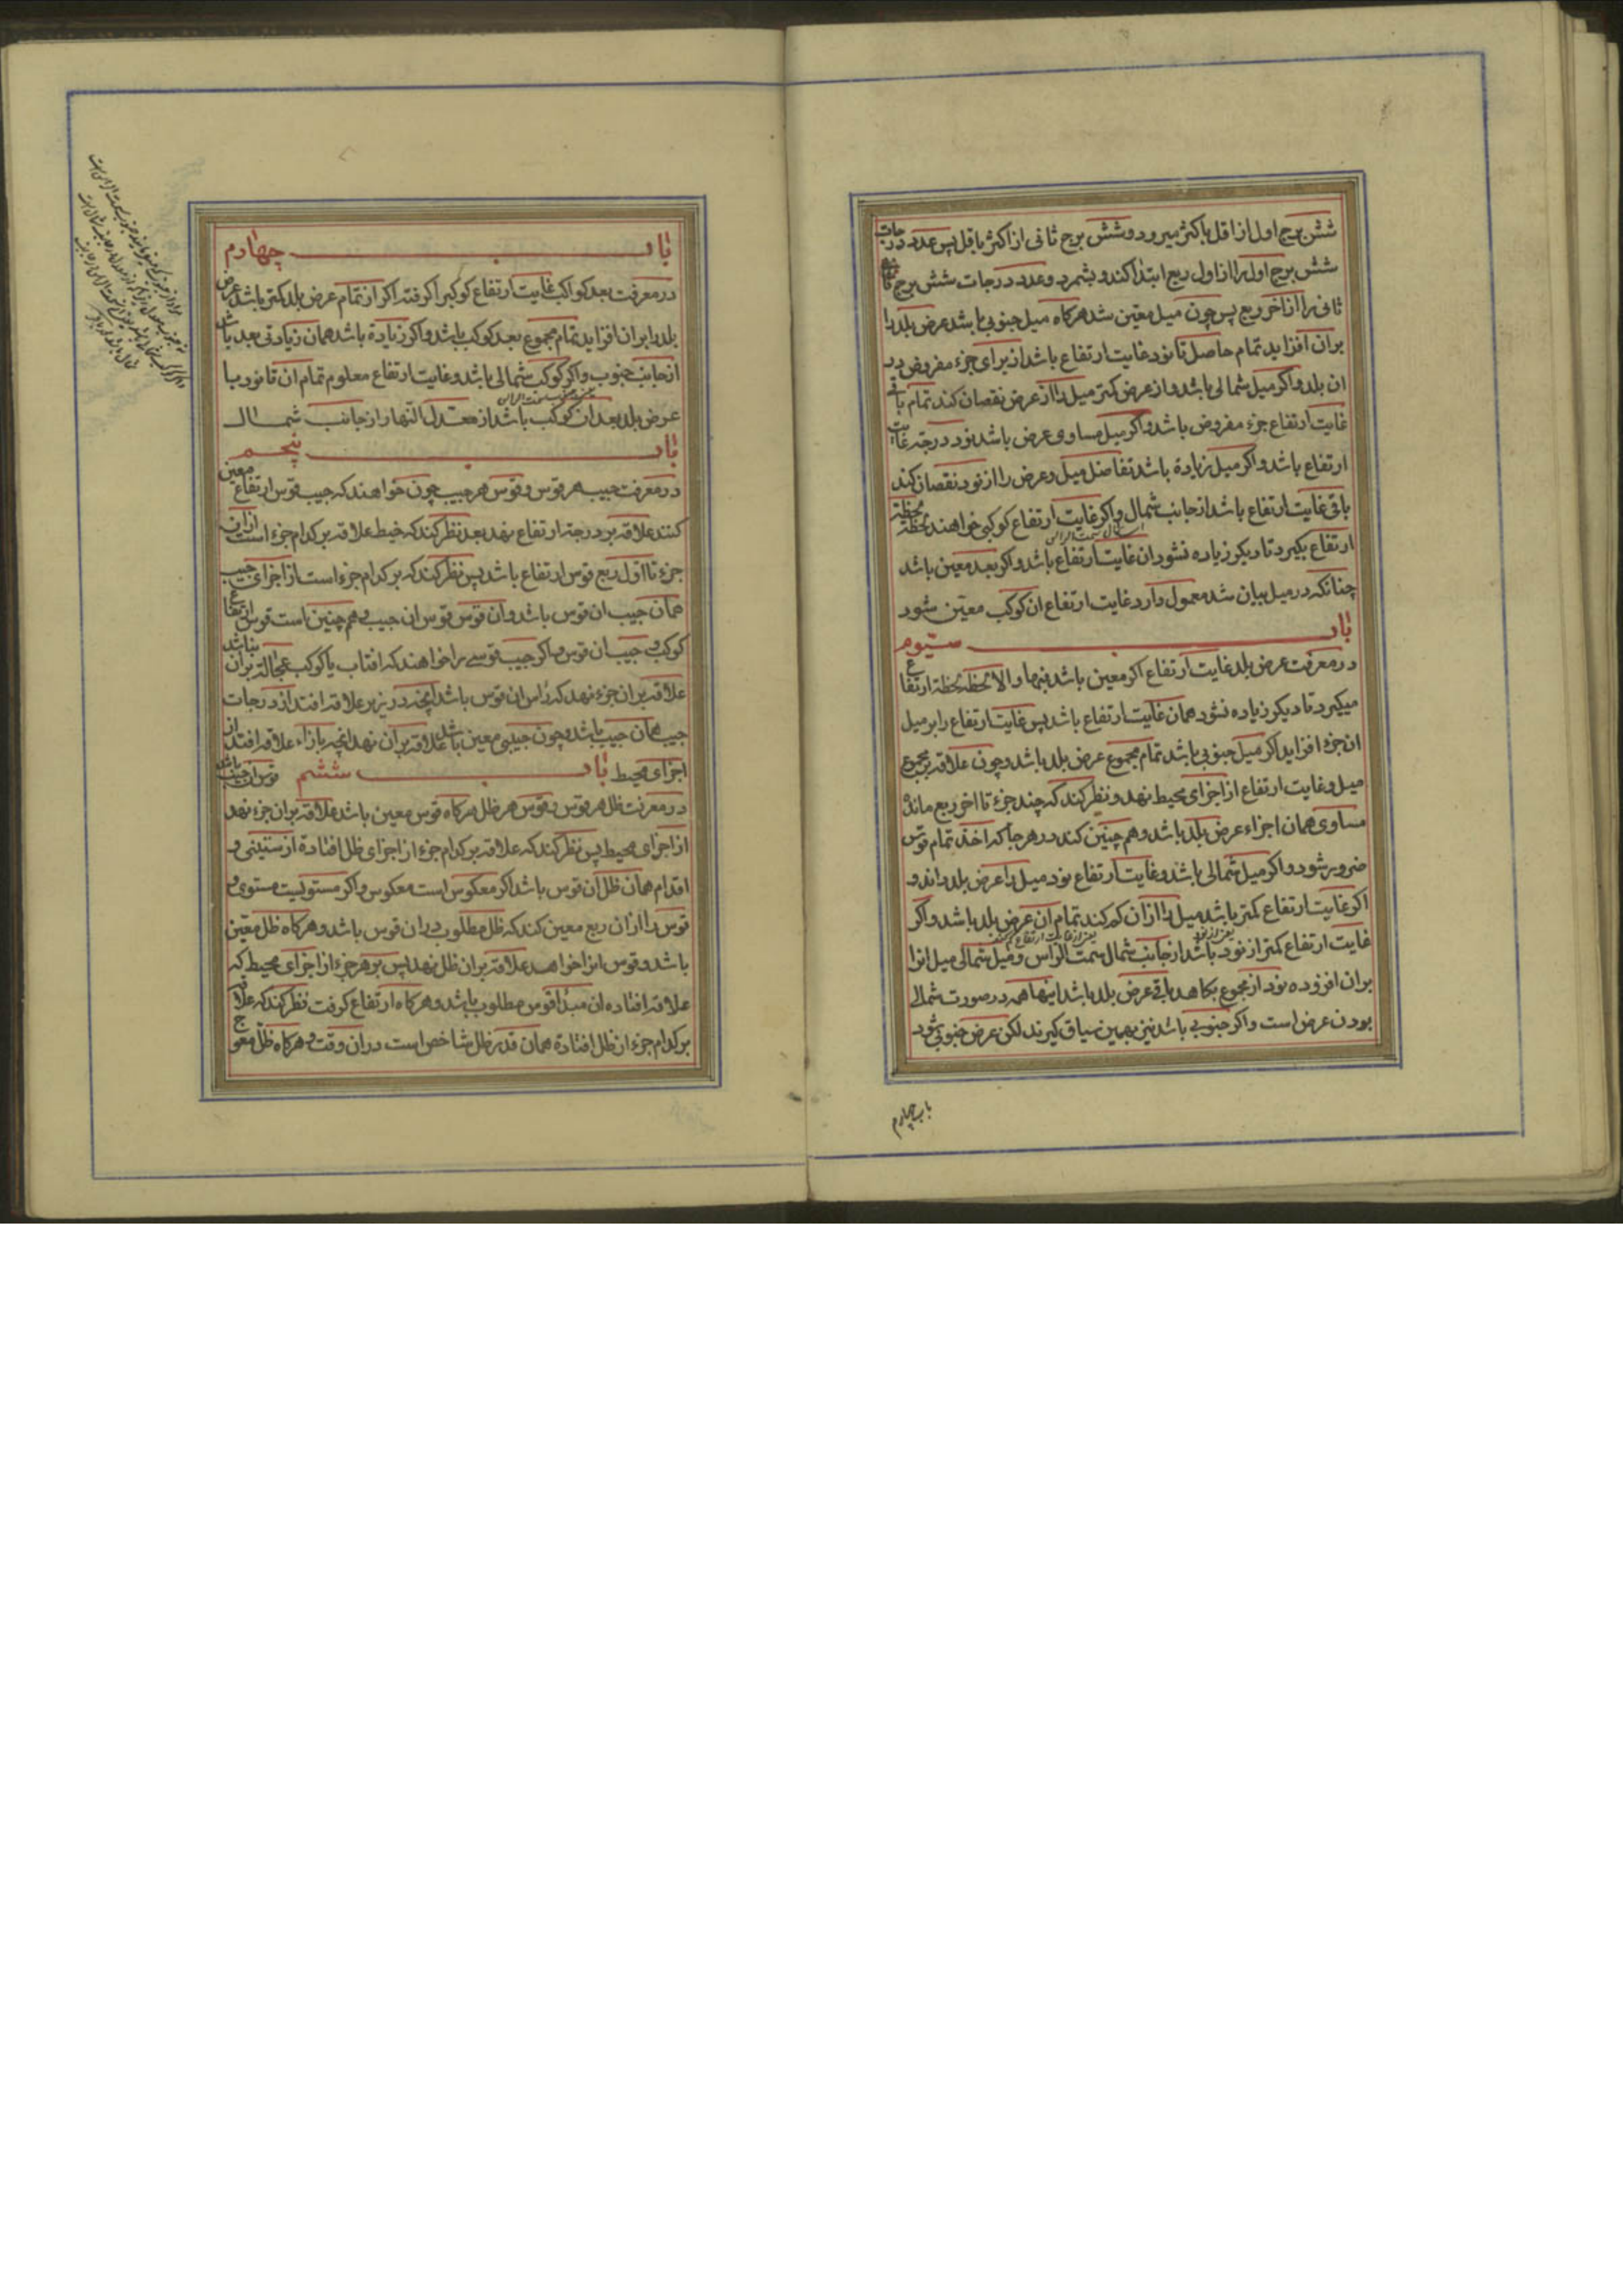 شش برج اول از اقل باکثر میرود و شش برج ثانی از اکثر باقل پس عدد درجات
شش برج اول را از اول ربع ابتدا کند و بشمرد و عدد درجات شش برج
ثانی را از اخر ربع پس چون میل معین شد هرکاه میل جنوبی باشد عرض بلد را
بران افزاید تمام حاصل تا نود غایت ارتفاع باشد از برای جزء مفروض در
ان بلد و اکر میل شمالی باشد و از عرض کمتر میل را از عرض نقصان کند تمام باقی
غایت ارتفاع جزء مفروض باشد و اکر میل مساوی عرض باشد نود درجه غایت
ارتفاع باشد و اکر میل زیادة باشد تفاضل میل و عرض را از نود نقصان کند
باقی غایت ارتفاع باشد از جانب شمال و اکر غایت ارتفاع کوکبی خواهند لحظة لحظة
سمت الراس
ارتفاع بکیرد تا دیکر زیاده نشود ان غایت ارتفاع باشد و اکر بعد معین باشد
چنانکه در میل بیان شد معمول دارد غایت ارتفاع ان کوکب معین شود
باب سیوم
در معرفت عرض بلد غایت ارتفاع اکر معین باشد فبها و الا لحظة لحظة ارتفاع
میکیرد تا دیکر زیاده نشود همان غایت ارتفاع باشد پس غایت ارتفاع را بر میل
ان جزء افزاید اکر میل جنوبی باشد تمام مجموع عرض بلد باشد و چون علاقه بر مجموع
میل و غایت ارتفاع از اجزای محیط نهد و نظر کند که چند جزء تا اخر ربع مانده
مساوی همان اجزاء عرض بلد باشد و هم چنین کند در هر جا که اخذ تمام قوس
ضرور شود و اکر میل شمالی باشد و غایت ارتفاع نود میل را عرض بلد داند و
اکر غایت ارتفاع کمتر باشد میل را ازان کم کند تمام ان عرض بلد باشد و اکر
یعنی از نود یعنی از غایت ارتفاع کم کند
غایت ارتفاع کمتر از نود باشد از جانب شمال سمت الراس و میل شمالی میل انرا
بران افزوده نود از مجموع بکاهد باقی عرض بلد باشد اینها همه در صورت شمالی
بودن عرض است و اکر جنوبی باشد نیز بهمین سیاق کیرند لکن عرض جنوبی شود
باب چهارم
باب چهارم
در معرفت بعد کواکب غایت ارتفاع کوکبرا کرفته اکر از تمام عرض بلد کمتر باشد عرض
بلد را بران افزاید تمام مجموع بعد کوکب باشد و اکر زیادة باشد همان زیادتی بعد باشد
از جانب جنوب و اکر کوکب شمالی باشد و غایت ارتفاع معلوم تمام ان تا نود با
سمت الراس
عرض بلد بعد ان کوکب باشد از معدل النهار از جانب شمال
باب پنجم
در معرفت جیب هر قوس و قوس هر جیب چون خواهند که جیب قوس ارتفاع معین
کنند علاقه بر درجه ارتفاع نهد بعد نظر کند که خیط علاقه بر کدام جزء است ازان
جزء تا اول ربع قوس ارتفاع باشد پس نظر کند که بر کدام جزء است از اجزای جیب
همان جیب ان قوس باشد و ان قوس قوس ان جیب و هم چنین است قوس ارتفاع
کوکب و جیب ان قوس و اکر جیب قوسی را خواهند که افتاب یا کوکب بحالة بران نباشد
علاقه بران جزء نهد که راس ان قوس باشد انچه در زیر علاقه افتد از درجات
جیب همان جیب باشد و چون جیبی معین باشد علاقه بران نهد انچه بازاء علاقه افتد از
اجزای محیط قوس ان جیب باشد
باب ششم
در معرفت ظل هر قوس و قوس هر ظل هرکاه قوس معین باشد علاقه بران جزء نهد
از اجزای محیط پس نظر کند که علاقه بر کدام جزء از اجزای ظل افتادة از ستینی و
اقدام همان ظل ان قوس باشد اکر معکوس است معکوس و اکر مستویست مستوی و
قوس را ازان ربع معین کند که ظل مطلوب دران قوس باشد و هرکاه ظل معین
باشد و قوس انرا خواهند علاقه بران ظل نهد پس بر هر جزء از اجزای محیط که
علاقه افتاده ان مبدأ قوس مطلوب باشد و هرکاه ارتفاع کرفت نظر کند که علاقه
بر کدام جزء از ظل افتادة همان قدر ظل شاخص است دران وقت و هرکاه ظل معوج